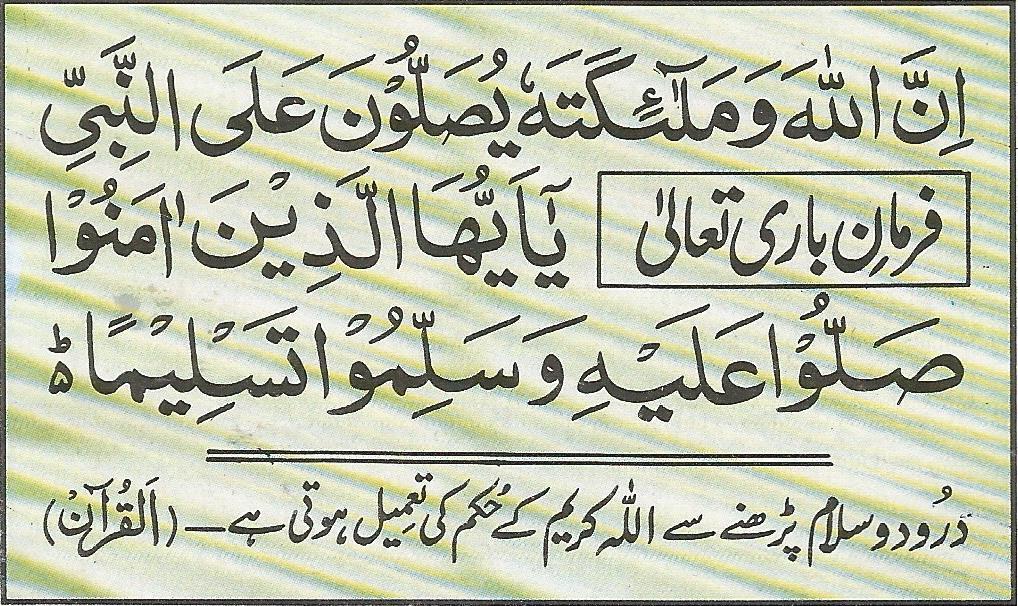 اِنَّ اللّٰهَ وَ مَلٰٓئِكَتَهٗ يُصَلُّوْنَ عَلَى النَّبِىِّ
فرمانِ باری تعالیٰ
يٰٓاَيُّهَا الَّذِيْنَ اٰمَنُوْا
صَلُّوْا عَلَيْهِ وَ سَلِّمُوْا تَسْلِيْمًا ۵ط
دُرود و سلام پڑھنے سے اللّٰہ کریم کے حُکم کی تعمِیل ہوتی ہے — (اَلقُرآنْ)